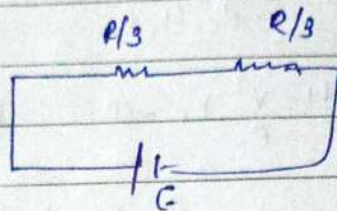 R/3 R/3
E